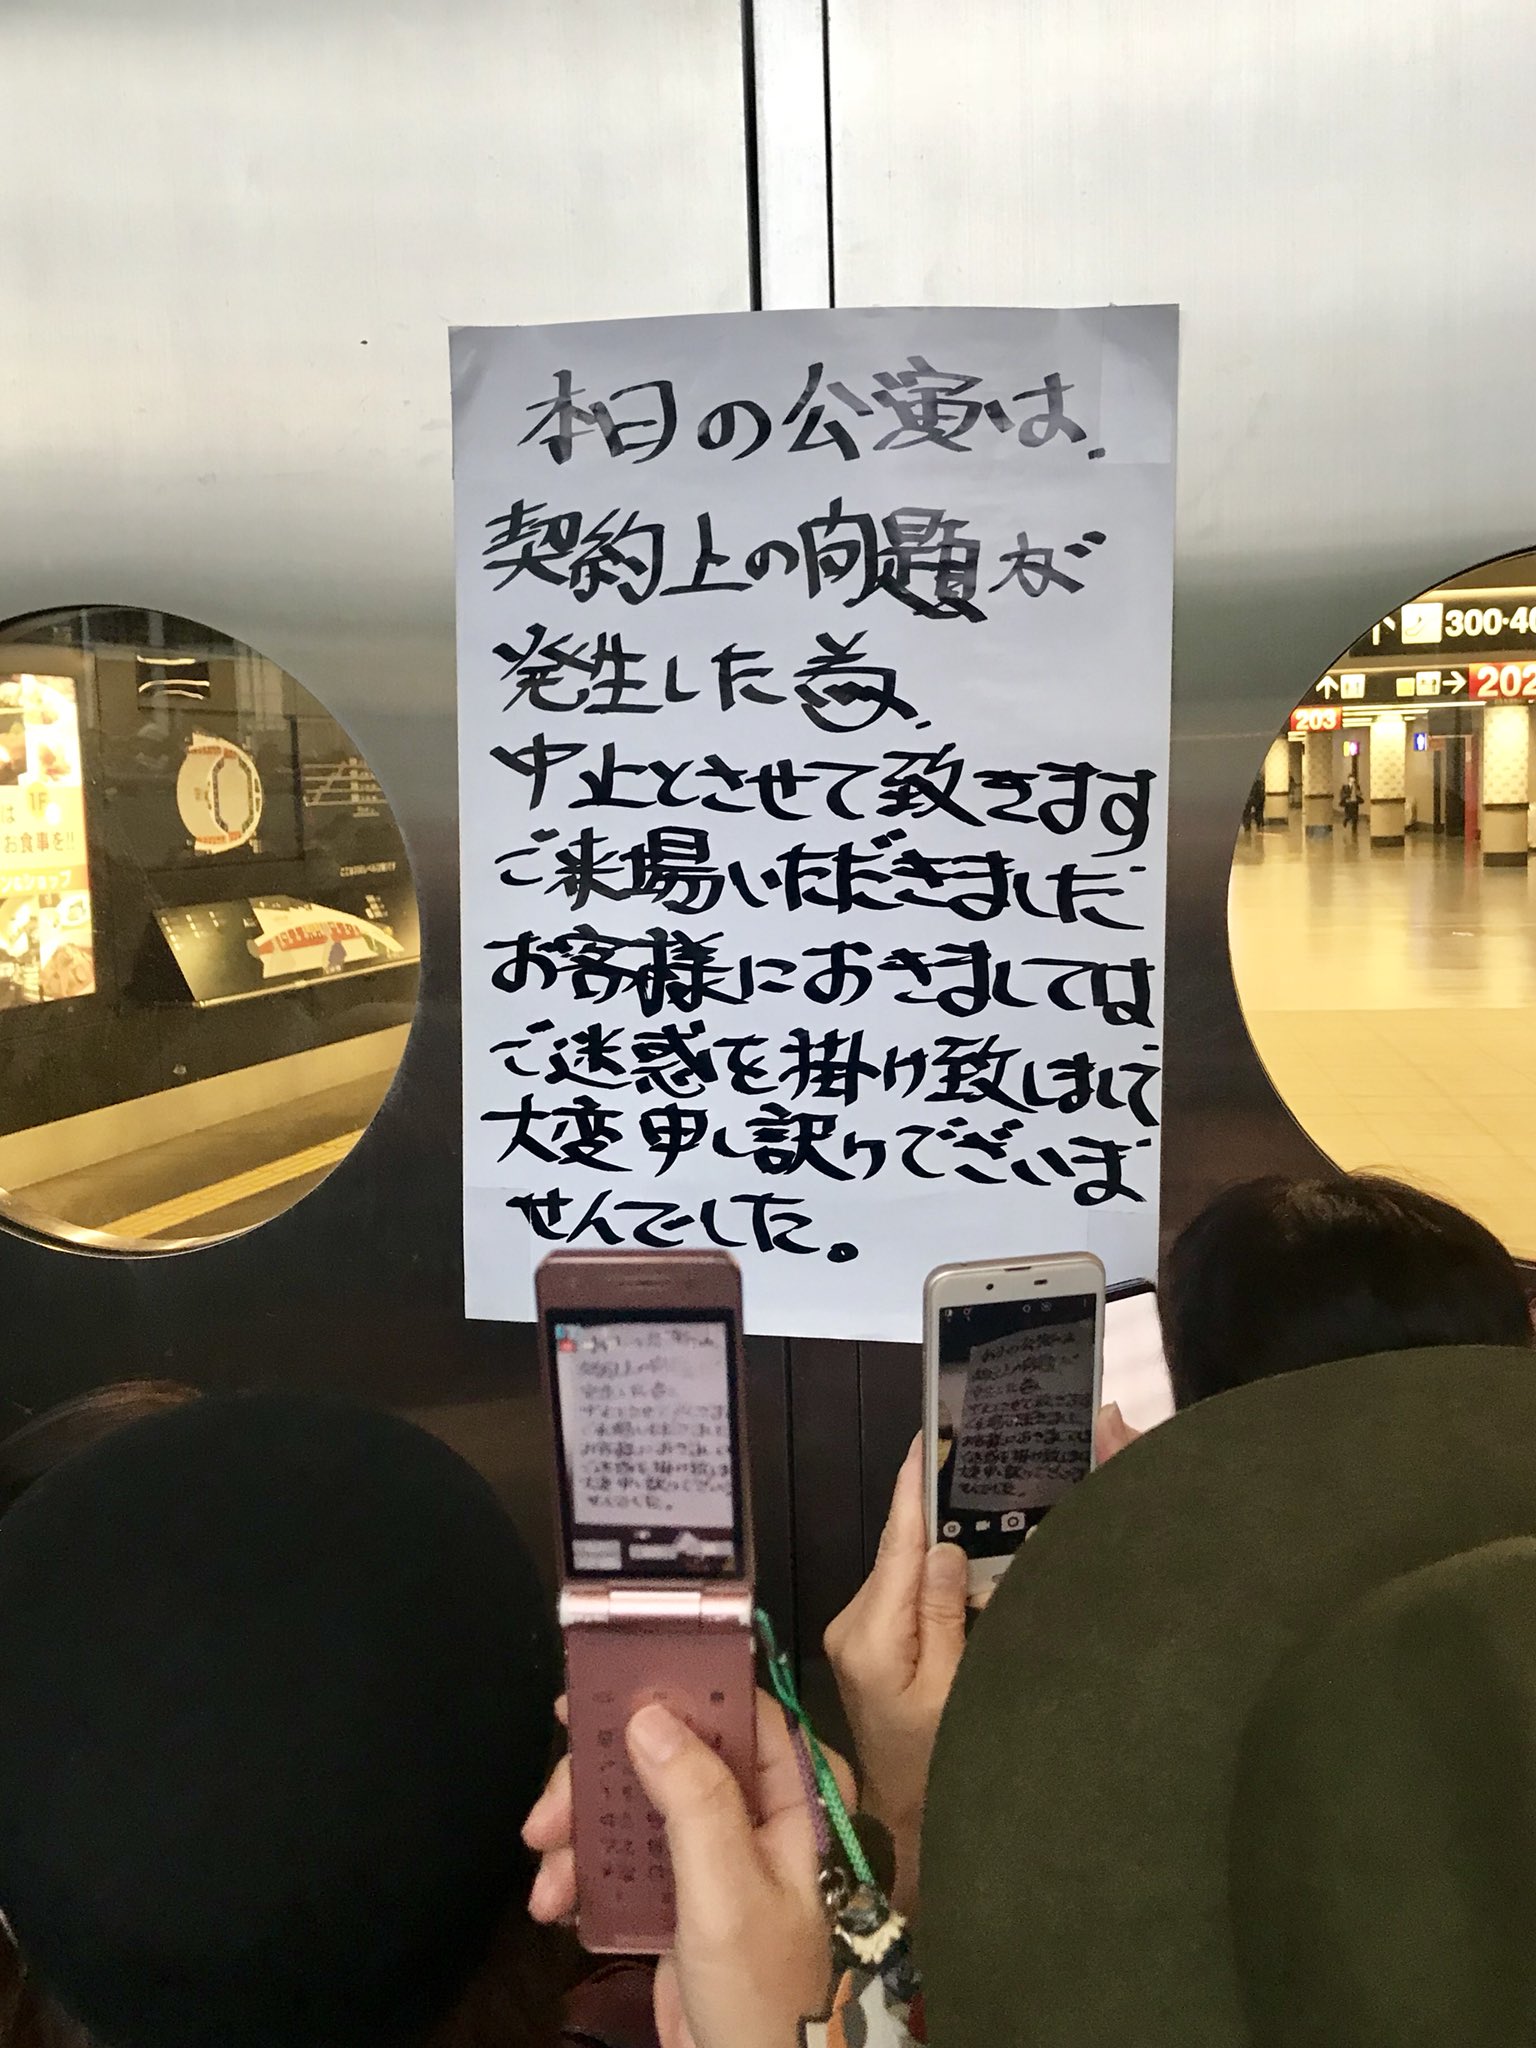 本日の公演は、
契約上の問題が
発生した為、
中止とさせて致きます
ご来場いただきました
お客様におきましては
ご迷惑を掛け致しまして
大変申し訳けございま
せんでした。
300·40
202
203
は 1F
お食事を!!
ン&ショップ